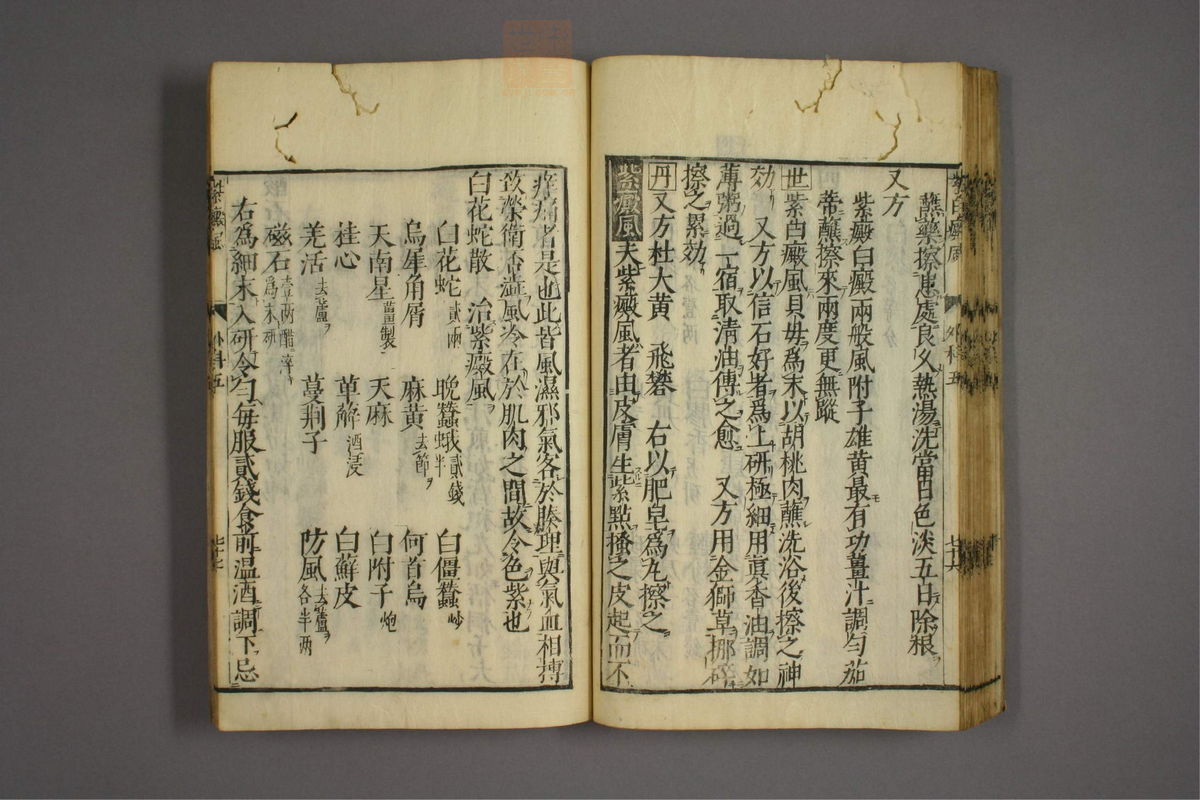 蘸藥擦患處良久熱湯洗當日色淡五日除根
又方
紫癜白癜兩般風附子雄黃最有功薑汁調勻茄
蒂蘸擦來兩度更無蹤
世紫白癜風貝母爲末以胡桃肉蘸洗浴後擦之神
効 又方以信石好者爲上研極細用眞香油調如
薄粥過一宿取淸油傅之愈 又方用金獅草挪碎
擦之累効
丹又方杜大黃 飛礬 右以肥皂爲丸擦之
紫癜風夫紫癜風者由皮膚生紫點搔之皮起而不
痒痛者是也此皆風濕邪氣客於腠理與氣血相搏
致榮衛否澁風冷在於肌肉之間故令色紫也
白花蛇散 治紫癜風
白花蛇貳兩 晩蠶蛾貳錢半 白僵蠶炒
烏犀角屑 麻黃去節 何首烏
天南星薑製 天麻 白附子炮
桂心 萆薢酒浸 白蘚皮
羌活去蘆 蔓荆子 防風去蘆各半兩
磁石壹兩醋淬爲末研
右爲細末入研令勻每服貳錢食前溫酒調下忌
紫白癜風 外科五 七十六
紫癜風 外科五 七十七